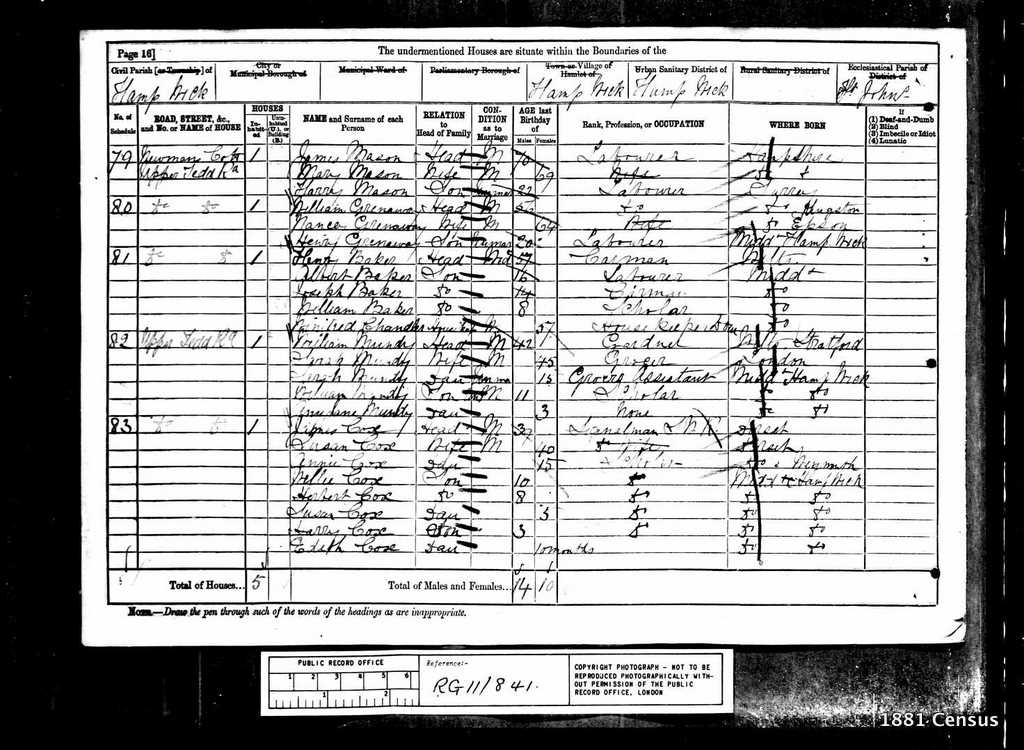 Page 16]
The undermentioned Houses are situate within the Boundaries of the
Civil Parish [or Township] of
City or Municipal Borough of
Municipal Ward of
Parliamentary Borough of
Town or Village of Hamlet of
Urban Sanitary District of
Rural Sanitary District of
Ecclesiastical Parish of District of
Hamp Wick
Hamp Wick
Hamp Wick
St John's
No. of Schedule
ROAD, STREET, &c., and No. or NAME of HOUSE
HOUSES
Inhabited
Uninhabited (U.), or Building (B.)
NAME and Surname of each Person
RELATION to Head of Family
CONDITION as to Marriage
AGE last Birthday of
Males
Females
Rank, Profession, or OCCUPATION
WHERE BORN
If
(1) Deaf-and-Dumb
(2) Blind
(3) Imbecile or Idiot
(4) Lunatic
79 Newmans Cotts 1 James Mason Head M 70 Labourer Hampshire
Upper Tedd Rd Mary Mason Wife M 69 Do
Harry Mason Son 22 Labourer Surrey
80 Do Do 1 William Grenaway Head M Do Do Kingston
Nancy Grenaway Wife M 64 Do Epsom
Henry Grenaway Son 20 Labourer Midd Hamp Wick
81 Do Do 1 Baker Head Wid 57 Carman
Albert Baker Son 16 Labourer Midd
Joseph Baker Do 14 Carman Do
William Baker Do 8 Scholar Do
Winifred Chandler 57 Housekeeper Dom Do
82 Upper Tedd Rd 1 William Mundy Head M 42 Gardner Stratford
Sarah Mundy Wife M 45 Grocer London
Sarah Mundy Dau 15 Grocery Assistant Midd Hamp Wick
William Mundy Son 11 Scholar Do Do
Mundy Dau 3 None Do Do
83 Do Do 1 James Cox Head M 39 Dorset
Susan Cox Wife M 40 Dorset
Annie Cox Dau 15 Do Weymoth
Son 10 Do Midd Hamp Wick
Herbert Cox Do 8 Do Do Do
Susan Cox Dau 5 Do Do Do
Harry Cox Son 3 Do Do Do
Edith Cox Dau 10 months Do Do
Total of Houses... 5
Total of Males and Females... 14 10
NOTE.—Draw the pen through such of the words of the headings as are inappropriate.
PUBLIC RECORD OFFICE
1 2 3 4 5 6
1 2
Reference:-
RG 11/841.
COPYRIGHT PHOTOGRAPH - NOT TO BE
REPRODUCED PHOTOGRAPHICALLY WITH-
OUT PERMISSION OF THE PUBLIC
RECORD OFFICE, LONDON
1881 Census